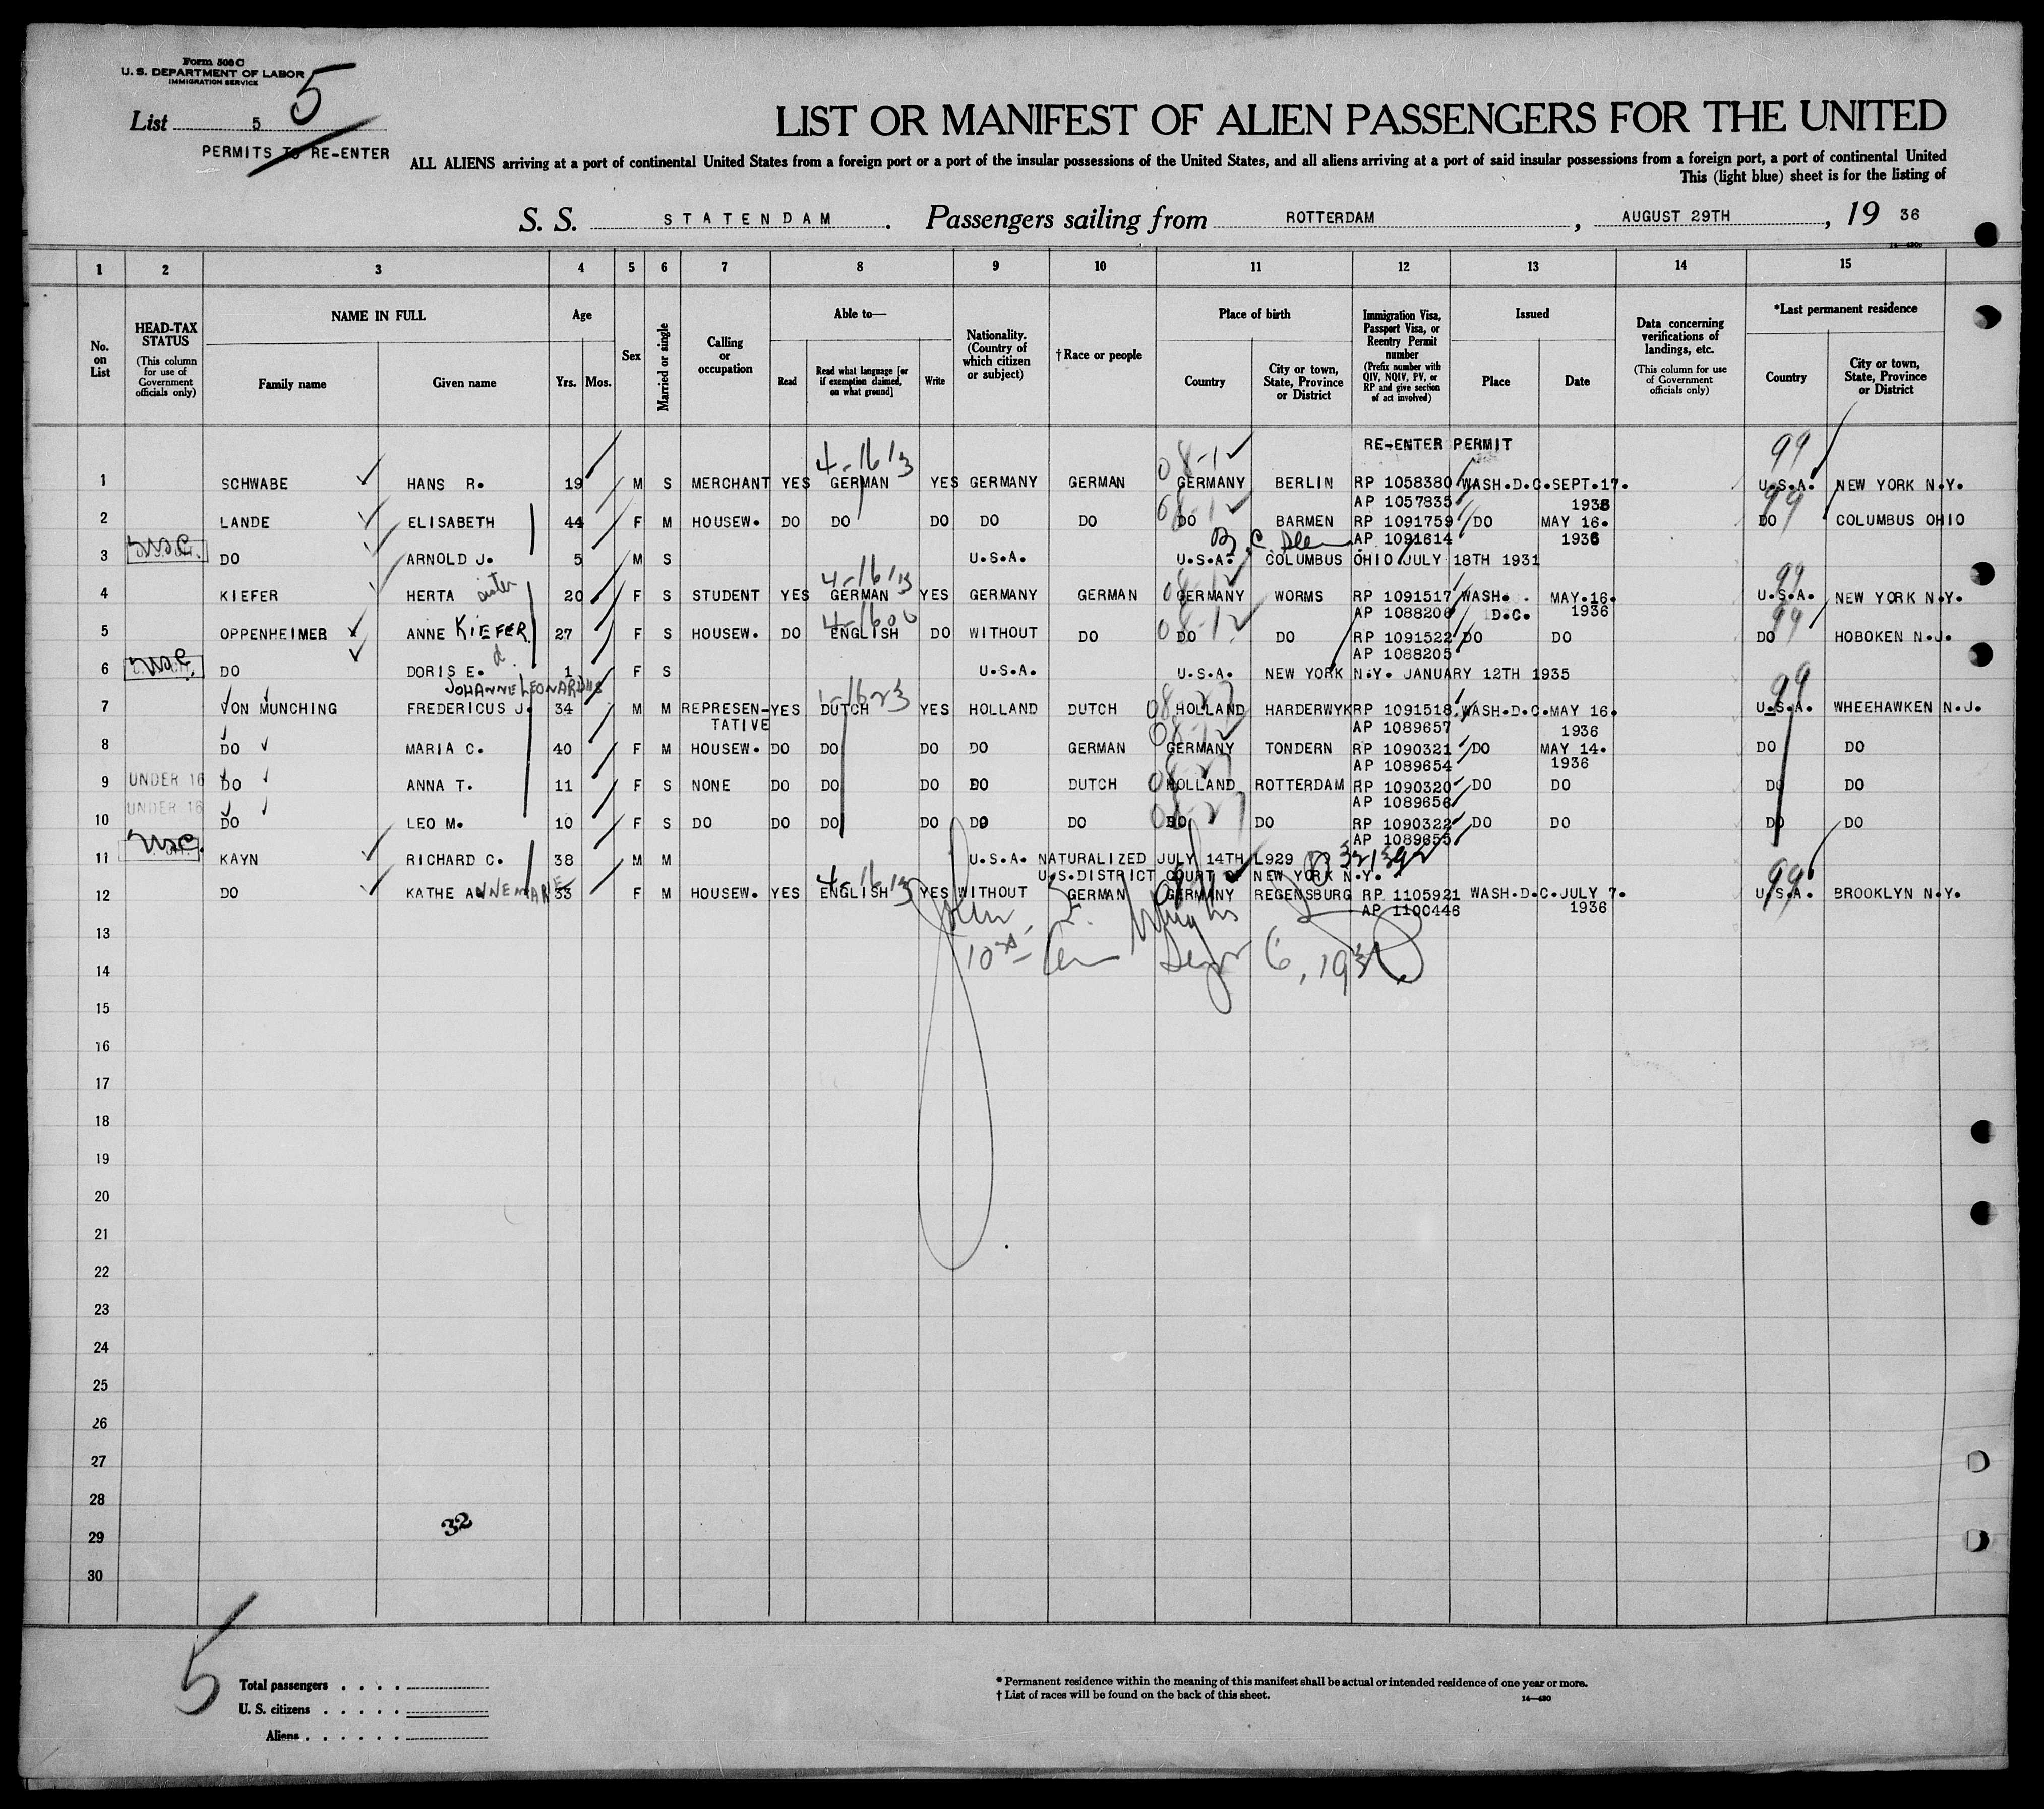 Form 500 C
U. S. DEPARTMENT OF LABOR
IMMIGRATION SERVICE
List 5 5
PERMITS TO RE-ENTER
LIST OR MANIFEST OF ALIEN PASSENGERS FOR THE UNITED
ALL ALIENS arriving at a port of continental United States from a foreign port or a port of the insular possessions of the United States, and all aliens arriving at a port of said insular possessions from a foreign port, a port of continental United
This (light blue) sheet is for the listing of
S. S. STATENDAM. Passengers sailing from ROTTERDAM, AUGUST 29TH, 19 36
1 2 3 4 5 6 7 8 9 10 11 12 13 14 15
No. on List
HEAD-TAX STATUS
(This column for use of Government officials only)
NAME IN FULL
Family name Given name
Age
Yrs. Mos.
Sex
Married or single
Calling or occupation
Able to—
Read Read what language [or if exemption claimed, on what ground] Write
Nationality. (Country of which citizen or subject)
†Race or people
Place of birth
Country City or town, State, Province or District
Immigration Visa, Passport Visa, or Reentry Permit number
(Prefix number with QIV, NQIV, PV, or RP and give section of act involved)
Issued
Place Date
Data concerning verifications of landings, etc.
(This column for use of Government officials only)
*Last permanent residence
Country City or town, State, Province or District
RE-ENTER PERMIT
4-1613 08-12 99
1 SCHWABE HANS R. 19 M S MERCHANT YES GERMAN YES GERMANY GERMAN GERMANY BERLIN RP 1058380 WASH.D.C. SEPT.17. U.S.A. NEW YORK N.Y.
AP 1057835 193
08-12 99
2 LANDE ELISABETH 44 F M HOUSEW. DO DO DO DO DO DO BARMEN RP 1091759 DO MAY 16. DO COLUMBUS OHIO
AP 1091614 1936
3 USC DO ARNOLD J. 5 M S U.S.A. U.S.A. COLUMBUS OHIO JULY 18TH 1931
sister 4-1613 08-12 99
4 KIEFER HERTA 20 F S STUDENT YES GERMAN YES GERMANY GERMAN GERMANY WORMS RP 1091517 WASH. MAY.16. U.S.A. NEW YORK N.Y.
AP 1088206 D.C. 1936
4-1600 08-12 99
5 OPPENHEIMER ANNE KIEFER 27 F S HOUSEW. DO ENGLISH DO WITHOUT DO DO DO RP 1091522 DO DO DO HOBOKEN N.J.
AP 1088205
6 USC DO DORIS E. d. 1 F S U.S.A. U.S.A. NEW YORK N.Y. JANUARY 12TH 1935
JOHANNE LEONARDUS 1623 08-27 99
7 VON MUNCHING FREDERICUS J. 34 M M REPRESEN- YES DUTCH YES HOLLAND DUTCH HOLLAND HARDERWYK RP 1091518 WASH.D.C. MAY 16. U.S.A. WHEEHAWKEN N.J.
TATIVE AP 1089657 1936
08-12
8 DO MARIA C. 40 F M HOUSEW. DO DO DO DO GERMAN GERMANY TONDERN RP 1090321 DO MAY 14. DO DO
AP 1089654 1936
08-27
9 UNDER 16 DO ANNA T. 11 F S NONE DO DO DO DO DUTCH HOLLAND ROTTERDAM RP 1090320 DO DO DO DO
AP 1089656
UNDER 16 08-27
10 DO LEO M. 10 F S DO DO DO DO DO DO DO DO RP 1090322 DO DO DO DO
AP 1089655
11 USC KAYN RICHARD C. 38 M M U.S.A. NATURALIZED JULY 14TH L929
U.S.DISTRICT COURT OF NEW YORK N.Y.
4-1613 99
12 DO KATHE ANNEMARIE 33 F M HOUSEW. YES ENGLISH YES WITHOUT GERMAN GERMANY REGENSBURG RP 1105921 WASH.D.C. JULY 7. U.S.A. BROOKLYN N.Y.
AP 1100446 1936
13
14
15
16
17
18
19
20
21
22
23
24
25
26
27
28
29 32
30
5
Total passengers
U. S. citizens
Aliens
* Permanent residence within the meaning of this manifest shall be actual or intended residence of one year or more.
† List of races will be found on the back of this sheet. 14—430